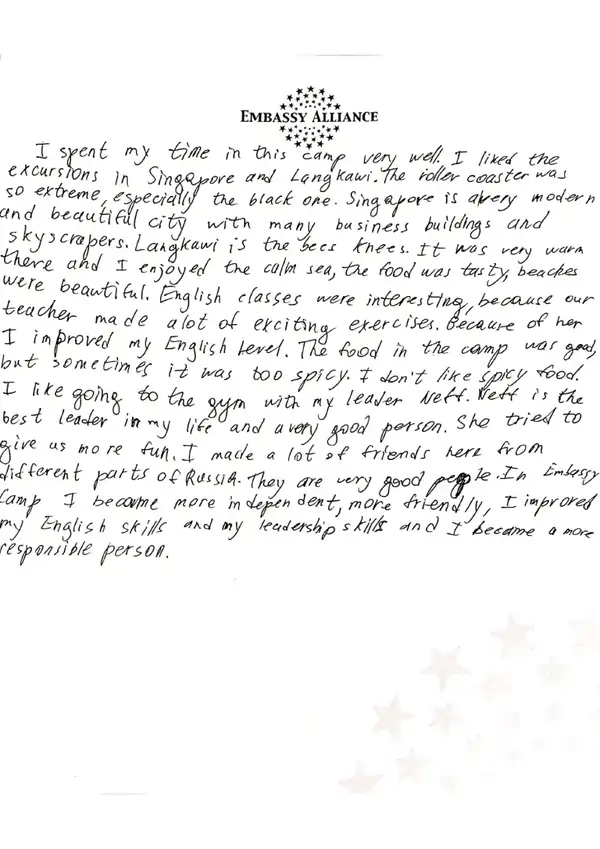 EMBASSY ALLIANCE
I spent my time in this camp very well. I liked the
excursions in Singapore and Langkawi. The roller coaster was
so extreme, especially the black one. Singapore is a very modern
and beautiful city with many business buildings and
skyscrapers. Langkawi is the bees knees. It was very warm
there and I enjoyed the calm sea, the food was tasty, beaches
were beautiful. English classes were interesting, because our
teacher made alot of exciting exercises. Because of her
I improved my English Level. The food in the camp was good,
but sometimes it was too spicy. I don't like spicy food.
I like going to the gym with my leader Neff. Neff is the
best leader in my life and a very good person. She tried to
give us more fun. I made a lot of friends here from
different parts of Russia. They are very good people. In Embassy
Camp I became more independent, more friendly, I improved
my English skills and my leadership skills and I became a more
responsible person.